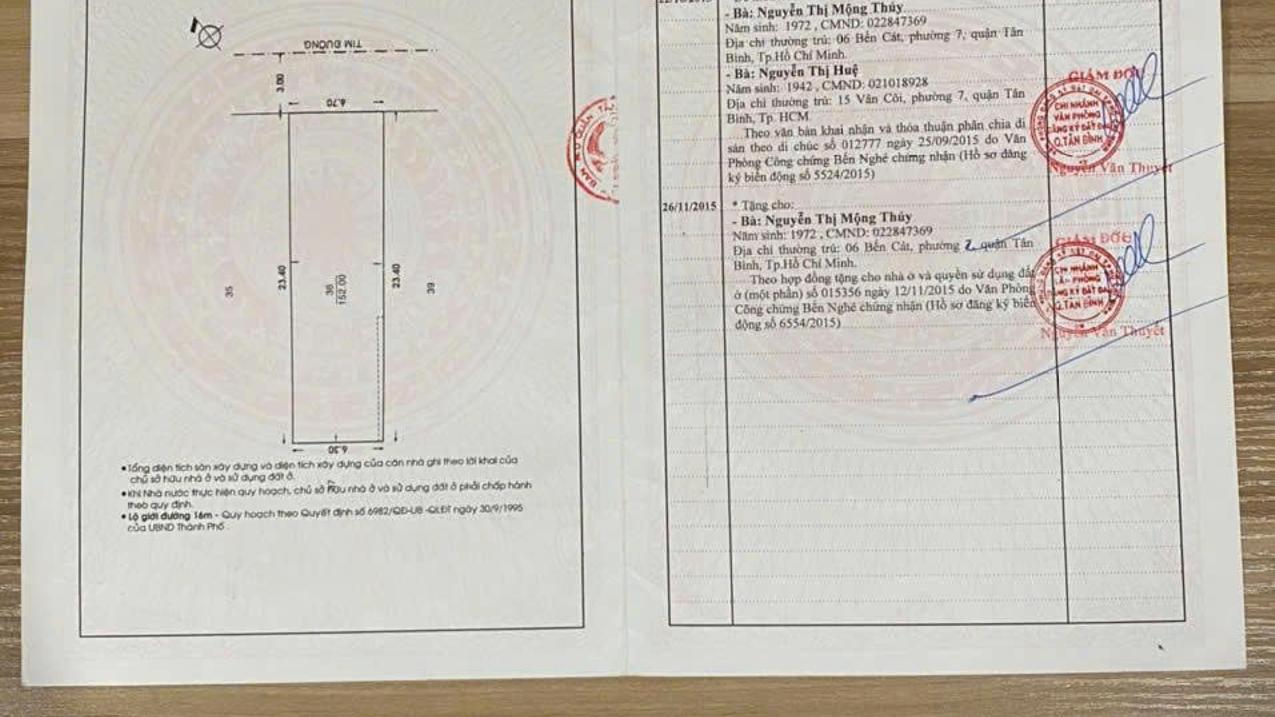 TIM ĐƯỜNG
3.00
6.70
23.40
23.40
35
36
152.00
39
6.30
• Tổng diện tích sàn xây dựng và diện tích xây dựng của căn nhà ghi theo lời khai của
chủ sở hữu nhà ở và sử dụng đất ở.
• Khi Nhà nước thực hiện quy hoạch, chủ sở hữu nhà ở và sử dụng đất ở phải chấp hành
theo quy định.
• Lộ giới đường 16m - Quy hoạch theo Quyết định số 6982/QĐ-UB -QLĐT ngày 30/9/1995
của UBND Thành Phố .
- Bà: Nguyễn Thị Mộng Thúy
Năm sinh: 1972 , CMND: 022847369
Địa chỉ thường trú: 06 Bến Cát, phường 7, quận Tân
Bình, Tp.Hồ Chí Minh.
- Bà: Nguyễn Thị Huệ
Năm sinh: 1942 , CMND: 021018928
Địa chỉ thường trú: 15 Văn Côi, phường 7, quận Tân
Bình, Tp. HCM.
Theo văn bản khai nhận và thỏa thuận phân chia di
sản theo di chúc số 012777 ngày 25/09/2015 do Văn
Phòng Công chứng Bến Nghé chứng nhận (Hồ sơ đăng
ký biến động số 5524/2015)
GIÁM ĐỐC
CHI NHÁNH
VĂN PHÒNG
ĐĂNG KÝ ĐẤT ĐAI
Q.TÂN BÌNH
Nguyễn Văn Thuyết
26/11/2015
* Tặng cho:
- Bà: Nguyễn Thị Mộng Thúy
Năm sinh: 1972 , CMND: 022847369
Địa chỉ thường trú: 06 Bến Cát, phường 7, quận Tân
Bình, Tp.Hồ Chí Minh.
Theo hợp đồng tặng cho nhà ở và quyền sử dụng đất
ở (một phần) số 015356 ngày 12/11/2015 do Văn Phòng
Công chứng Bến Nghé chứng nhận (Hồ sơ đăng ký biến
động số 6554/2015)
GIÁM ĐỐC
CHI NHÁNH
VĂN PHÒNG
ĐĂNG KÝ ĐẤT ĐAI
Q.TÂN BÌNH
Nguyễn Văn Thuyết